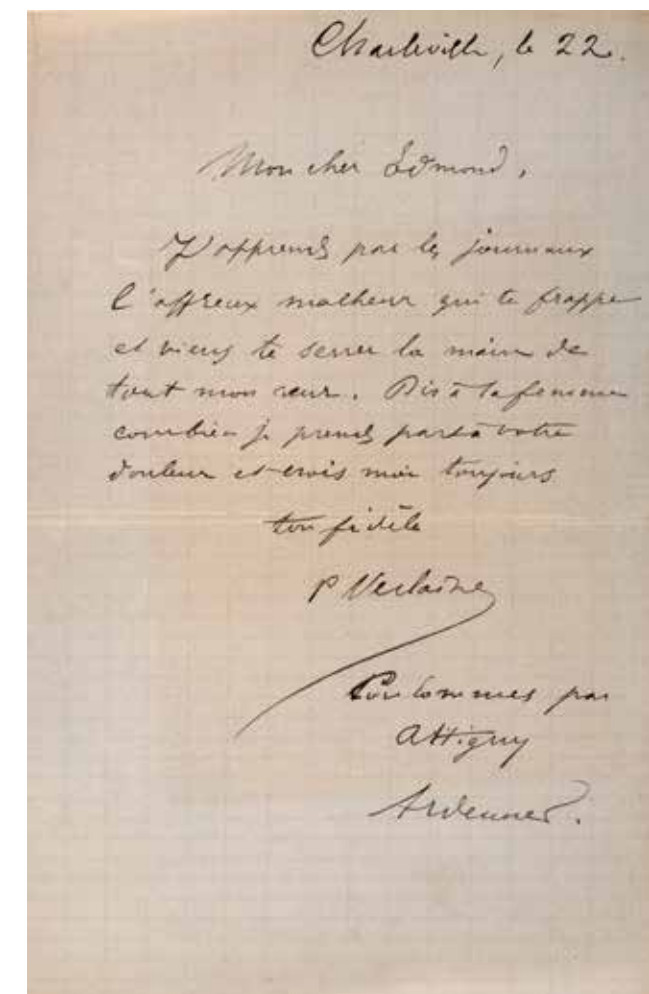 Charleville, le 22.
Mon cher Edmond,
J'apprends par les journaux
l'affreux malheur qui te frappe
et viens te serrer la main de
tout mon cœur. Dis à ta femme
combien je prends part à votre
douleur et crois moi toujours
ton fidèle
P Verlaine
Coulommes par
Attigny
Ardennes.